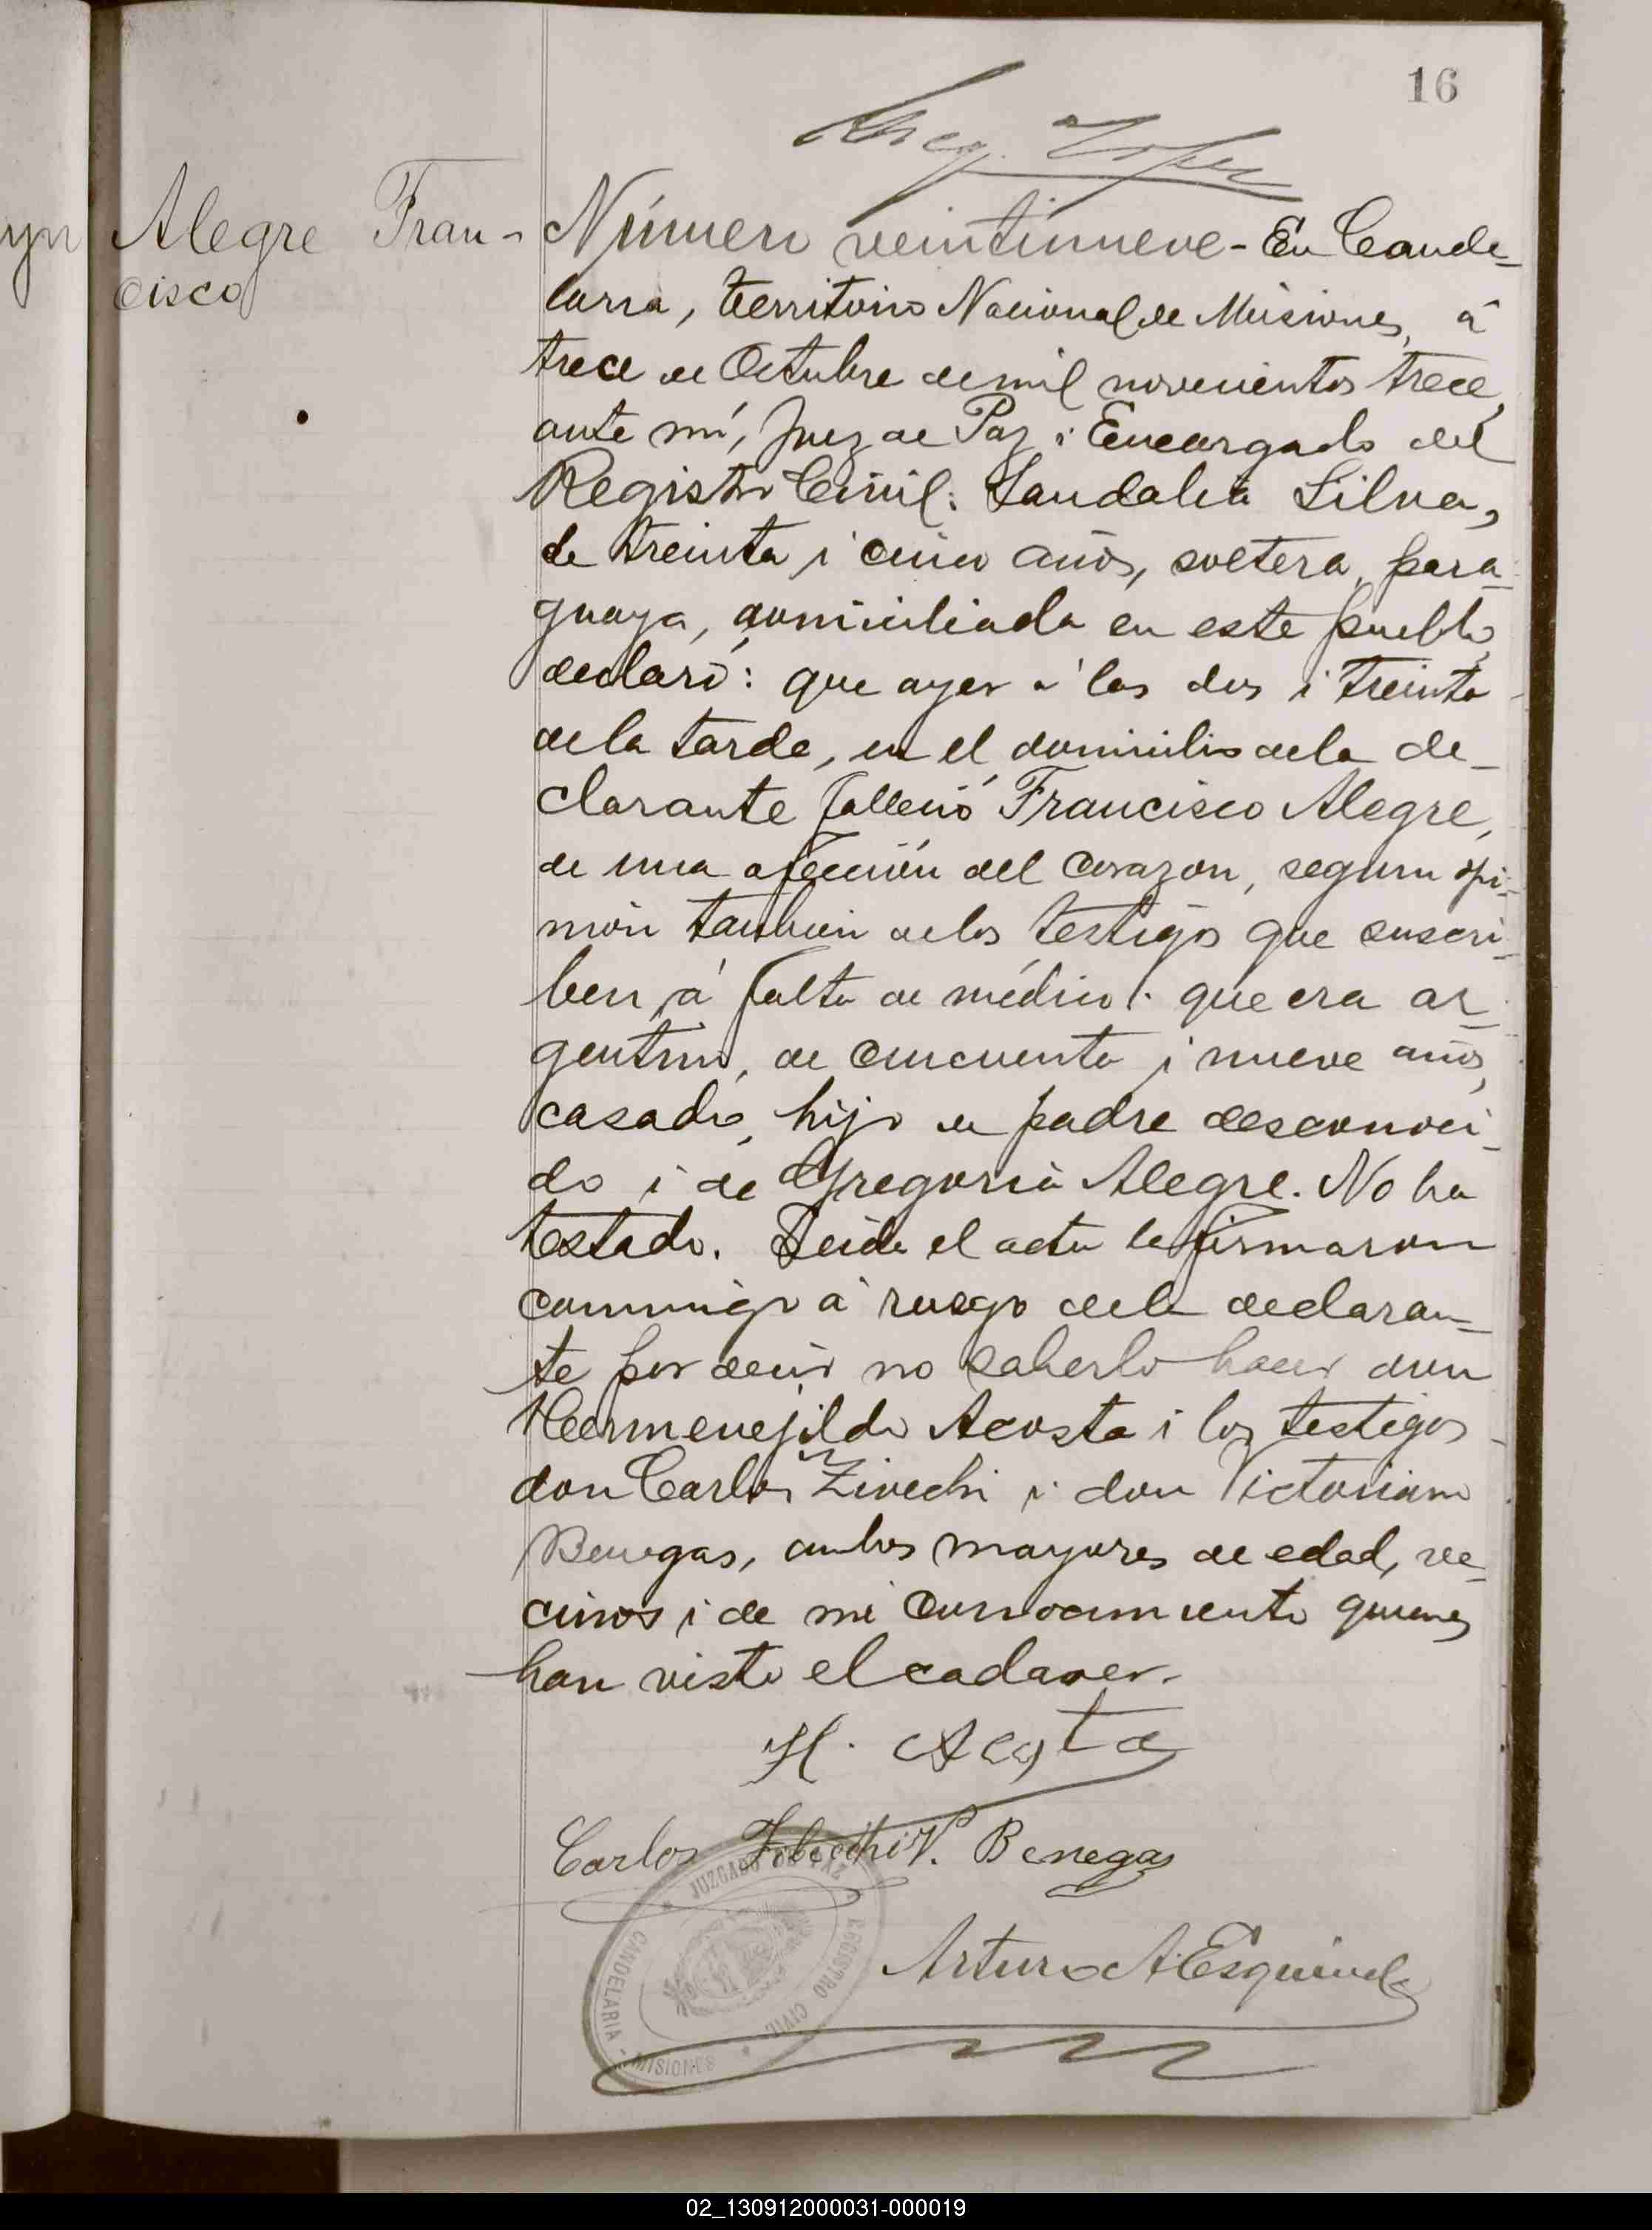 16
Alegre Fran-
cisco
Número veintinueve - En Cande-
laria, territorio Nacional de Misiones, á
trece de Octubre de mil novecientos trece,
ante mí, Juez de Paz i Encargado del
Registro Civil: Sandalia Silva,
de treinta i cinco años, soltera, para-
guaya, domiciliada en este pueblo,
declaró: que ayer á las dos i treinta
de la tarde, en el domicilio de la de-
clarante falleció Francisco Alegre,
de una afección del corazon, segun opi-
nión tambien de los testigos que suscri-
ben á falta de médico: que era ar-
gentino, de cincuenta i nueve años,
casado, hijo de padre desconoci-
do i de Gregoria Alegre. No ha
testado. Leida el acta la firmaron
conmigo á ruego de la declaran-
te por decir no saberlo hacer don
Hermenejildo Acosta i los testigos
don Carlos i don Victoriano
Benegas, ambos mayores de edad, ve-
cinos i de mi conocimiento quienes
han visto el cadaver.
H. Acosta
Carlos V. Benegas
JUZGADO DE PAZ
REGISTRO CIVIL
CANDELARIA - MISIONES
Arturo A. Esquivel
02_130912000031-000019